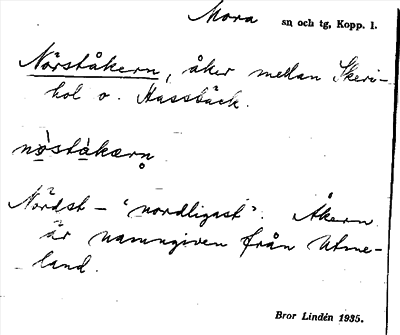 Mora sn och tg, Kopp. l.
Nörståkern, åker mellan Skeri-
hol o. Hassbäck.
nö̀ståkærn
Nördst - "nordligast". Åkern
är namngiven från Utme-
land.
Bror Lindén 1935.